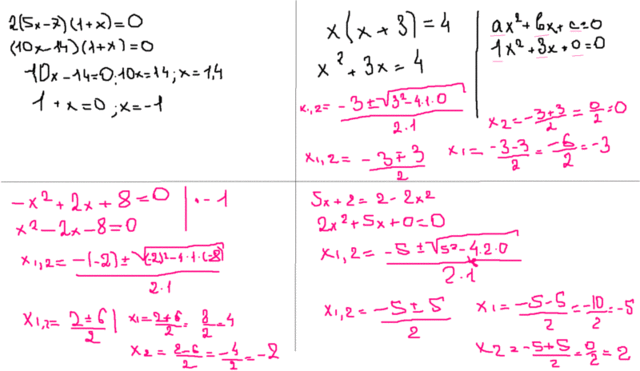 2(5x-7)(1+x)=0
(10x-14)(1+x)=0
10x-14=0; 10x=14; x=1,4
1+x=0; x=-1
x(x+3)=4
x²+3x=4
ax²+bx+c=0
1x²+3x+0=0
x₁,₂= -3±√3²-4.1.0 / 2.1
x₁,₂= -3∓3 / 2
x₂=-3+3/2=0/2=0
x₁=-3-3/2=-6/2=-3
-x²+2x+8=0 |·-1
x²-2x-8=0
x₁,₂= -(-2)±√(-2)²-4·1·(-8) / 2.1
x₁,₂=2±6/2
x₁=2+6/2=8/2=4
x₂=2-6/2=-4/2=-2
5x+2=2-2x²
2x²+5x+0=0
x₁,₂= -5±√5²-4.2.0 / 2.1
x₁,₂=-5±5/2
x₁=-5-5/2=-10/2=-5
x₂=-5+5/2=0/2=2